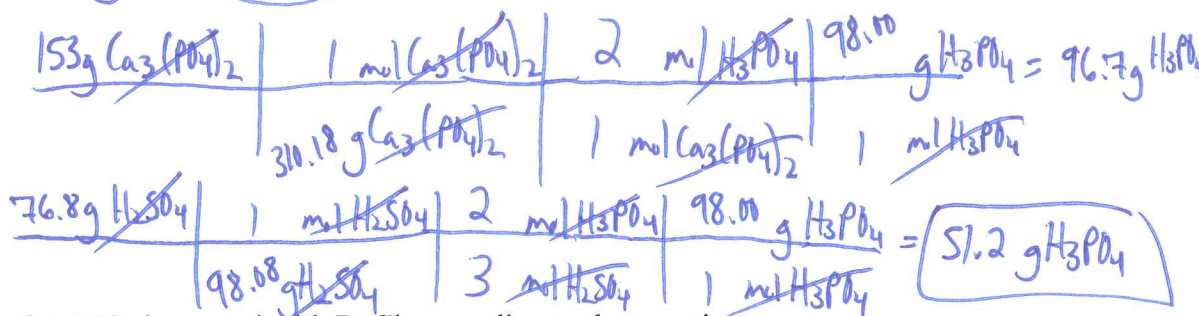 153g Ca3(PO4)2 | 1 mol Ca3(PO4)2 | 2 mol H3PO4 | 98.00 g H3PO4 = 96.7g H3PO
310.18 g Ca3(PO4)2 | 1 mol Ca3(PO4)2 | 1 mol H3PO4
76.8g H2SO4 | 1 mol H2SO4 | 2 mol H3PO4 | 98.00 g H3PO4 = 51.2 g H3PO4
98.08 g H2SO4 | 3 mol H2SO4 | 1 mol H3PO4